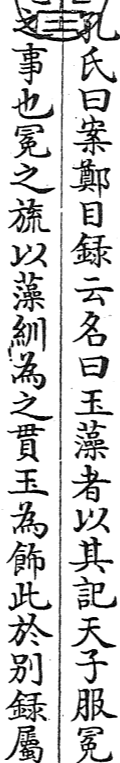 孔氏曰案鄭目録云名曰玉藻者以其記天子服冕
之事也冕之旒以藻紃為之貫玉為飾此於别録屬